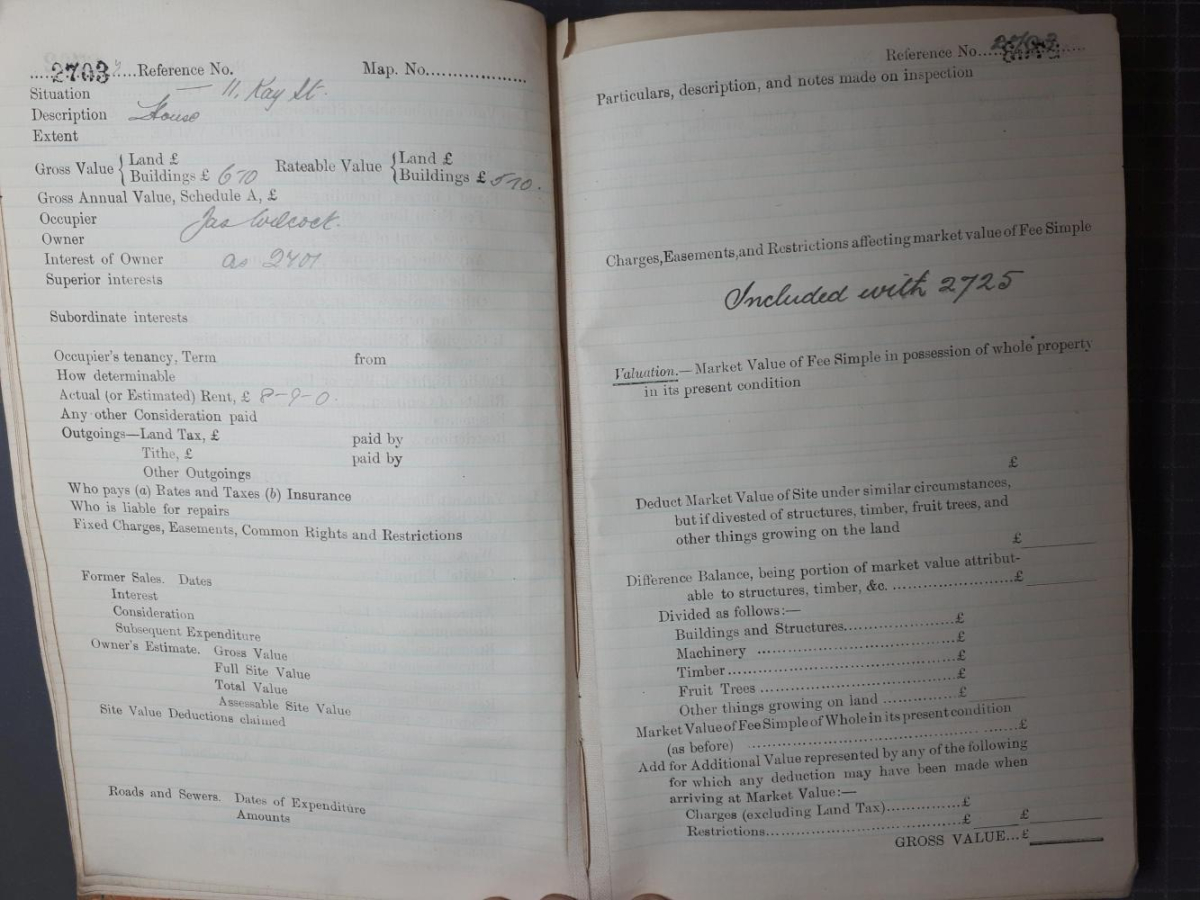 ....2703....Reference No. Map. No..................
Situation — 11. Kay St.
Description House
Extent
Gross Value { Land £
Buildings £ 6 10 Rateable Value { Land £
Buildings £ 5 10.
Gross Annual Value, Schedule A, £
Occupier Jas Wilcock.
Owner
Interest of Owner as 2701
Superior interests
Subordinate interests
Occupier's tenancy, Term from
How determinable
Actual (or Estimated) Rent, £ 8-9-0.
Any other Consideration paid
Outgoings—Land Tax, £ paid by
Tithe, £ paid by
Other Outgoings
Who pays (a) Rates and Taxes (b) Insurance
Who is liable for repairs
Fixed Charges, Easements, Common Rights and Restrictions
Former Sales. Dates
Interest
Consideration
Subsequent Expenditure
Owner's Estimate. Gross Value
Full Site Value
Total Value
Assessable Site Value
Site Value Deductions claimed
Roads and Sewers. Dates of Expenditure
Amounts
Reference No.
Particulars, description, and notes made on inspection
Charges, Easements, and Restrictions affecting market value of Fee Simple
Included with 2725
Valuation.—Market Value of Fee Simple in possession of whole property
in its present condition
£
Deduct Market Value of Site under similar circumstances,
but if divested of structures, timber, fruit trees, and
other things growing on the land £
Difference Balance, being portion of market value attribut-
able to structures, timber, &c. ....................£
Divided as follows:—
Buildings and Structures...................£
Machinery ..................................£
Timber.......................................£
Fruit Trees .................................£
Other things growing on land .............£
Market Value of Fee Simple of Whole in its present condition
(as before) ..............................................£
Add for Additional Value represented by any of the following
for which any deduction may have been made when
arriving at Market Value:—
Charges (excluding Land Tax)..............£
Restrictions.................................£ £
GROSS VALUE...£